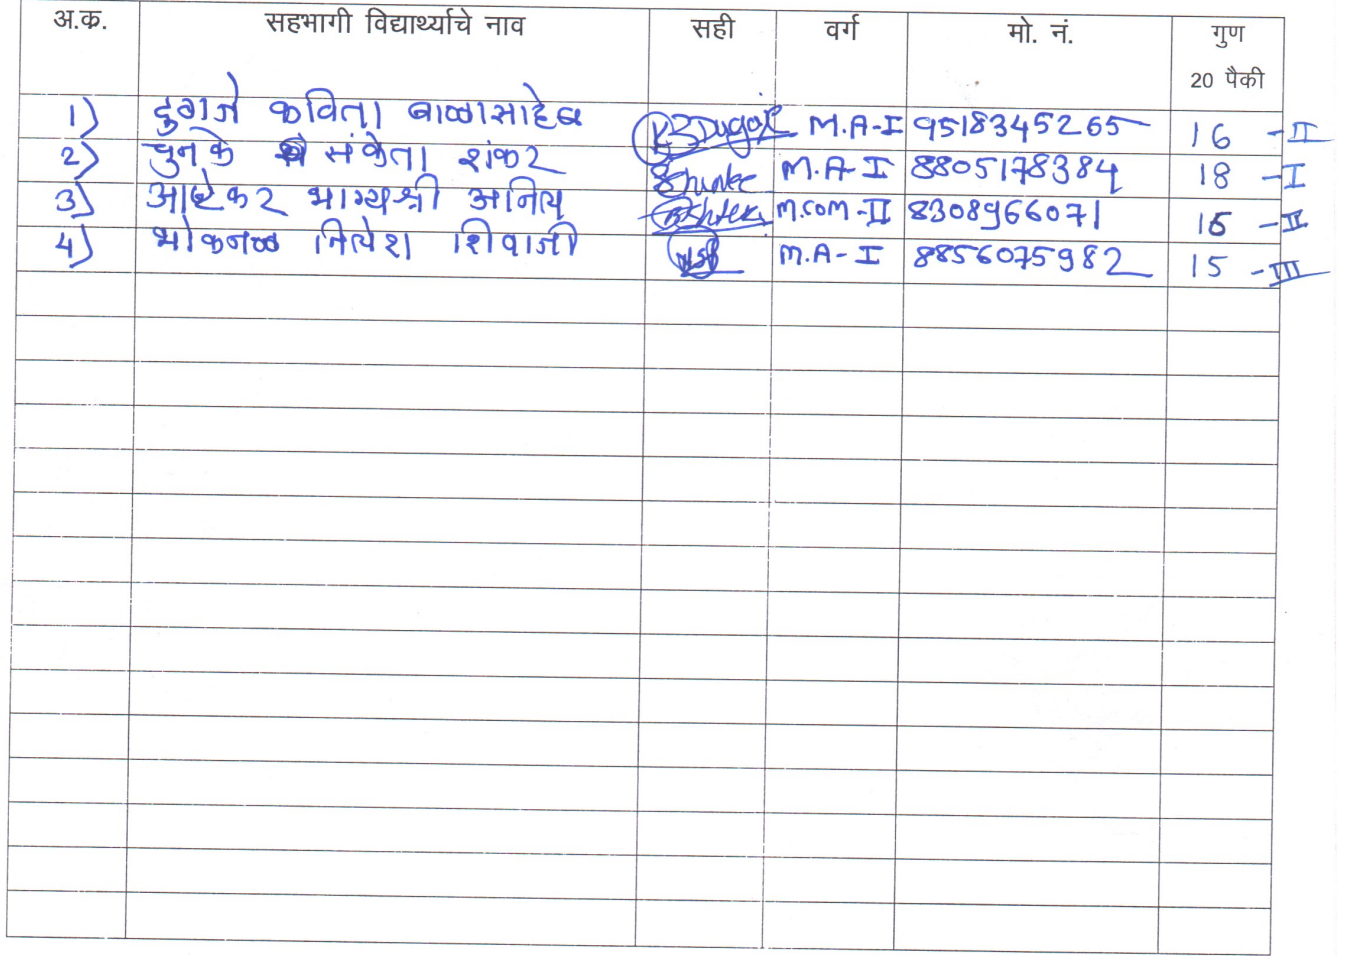 अ.क्र. सहभागी विद्यार्थ्याचे नाव सही वर्ग मो. नं. गुण
20 पैकी
1) दुगाजे कविता बाळासाहेब M.A-I 9518345265 16 -II
2) चुनके संकेता शंकर M.A-I 8805178384 18 -I
3) आष्टेकर भाग्यश्री अनिल M.COM-II 8308966071 16 -II
4) भोकनळ नितेश शिवाजी M.A-I 8856075982 15 -III